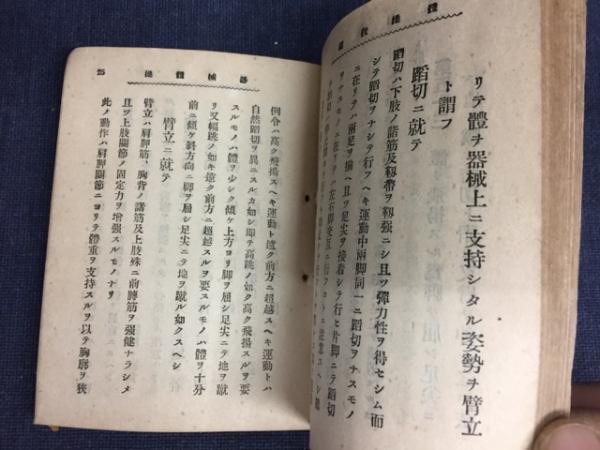 器械體操
リテ體ヲ器械上ニ支持シタル姿勢ヲ臂立
ト謂フ
蹈切ニ就テ
蹈切ハ下肢ノ諸筋及靱帶ヲ靱強ニシ且ツ彈力性ヲ得セシム而
シテ蹈切ヲナシテ行フヘキ運動中兩脚同一ニ蹈切ヲナスモノ
ニ在リテハ兩足ヲ揃ヘ且ツ足尖ヲ接着シテ行ヒ片脚ニテ蹈切
ヲナスモノニ在リテハ左右脚交互ニ行フコトニ注意スヘシ
器械體操
25
例令ハ高ク飛揚スヘキ運動ト遠ク前方ニ超越スヘキ運動トハ
自然蹈切ヲ異ニスルカ如シ即チ高跳ノ如ク高ク飛揚スルヲ要
スルモノハ體ヲ少シク傾ケ上方ヨリ脚ヲ屈シ足尖ニテ地ヲ蹴
リ又幅跳ノ如キ遠ク前方ニ超越スルヲ要スルモノハ體ヲ十分
前ニ傾ケ斜方向ニ脚ヲ屈シ足尖ニテ地ヲ蹴ル如クスヘシ
臂立ニ就テ
臂立ハ肩胛筋、胸背ノ諸筋及上肢殊ニ前膊筋ヲ强健ナラシメ
且ツ上肢關節ノ固定力ヲ增强スルモノナリ
此ノ動作ハ肩胛關節ニヨリテ體重ヲ支持スルヲ以テ胸廓ヲ狹